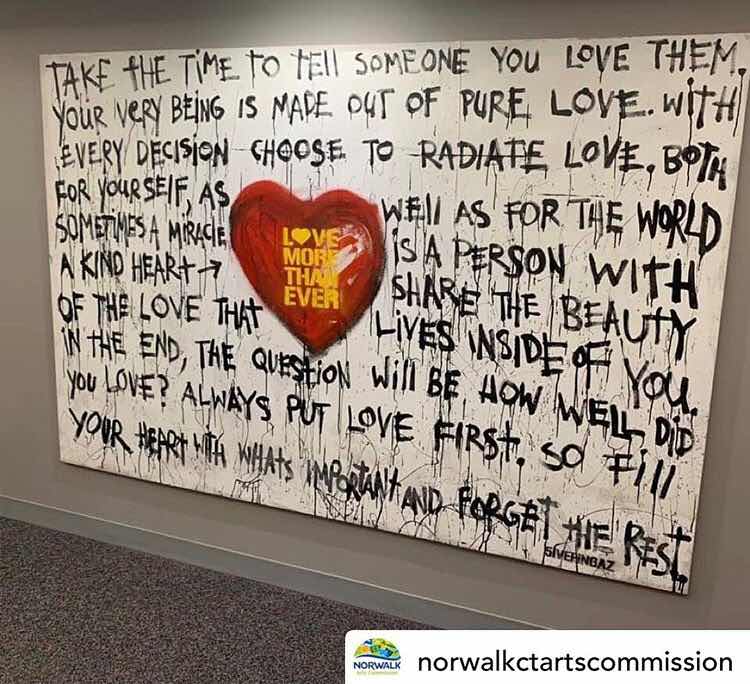 TAKE THE TIME TO TEll SOMEONE YOU LOVE THEM,
YOUR VERY BEING IS MADE OUT OF PURE LOVE. WITH
EVERY DECISION CHOOSE TO RADIATE LOVE, BOTH
FOR YOURSELF, AS WEll AS FOR THE WORLD
SOMETIMES A MIRACLE IS A PERSON WITH
A KIND HEART → SHARE THE BEAUTY
OF THE LOVE THAT LIVES INSIDE OF YOU.
IN THE END, THE QUESTION WIll BE HOW WELL DID
YOU LOVE? ALWAYS PUT LOVE FIRST. SO FIll
YOUR HEART WITH WHATS IMPORTANT AND FORGET THE REST.
L♥VE
MORE
THAN
EVER
NORWALK
norwalkctartscommission